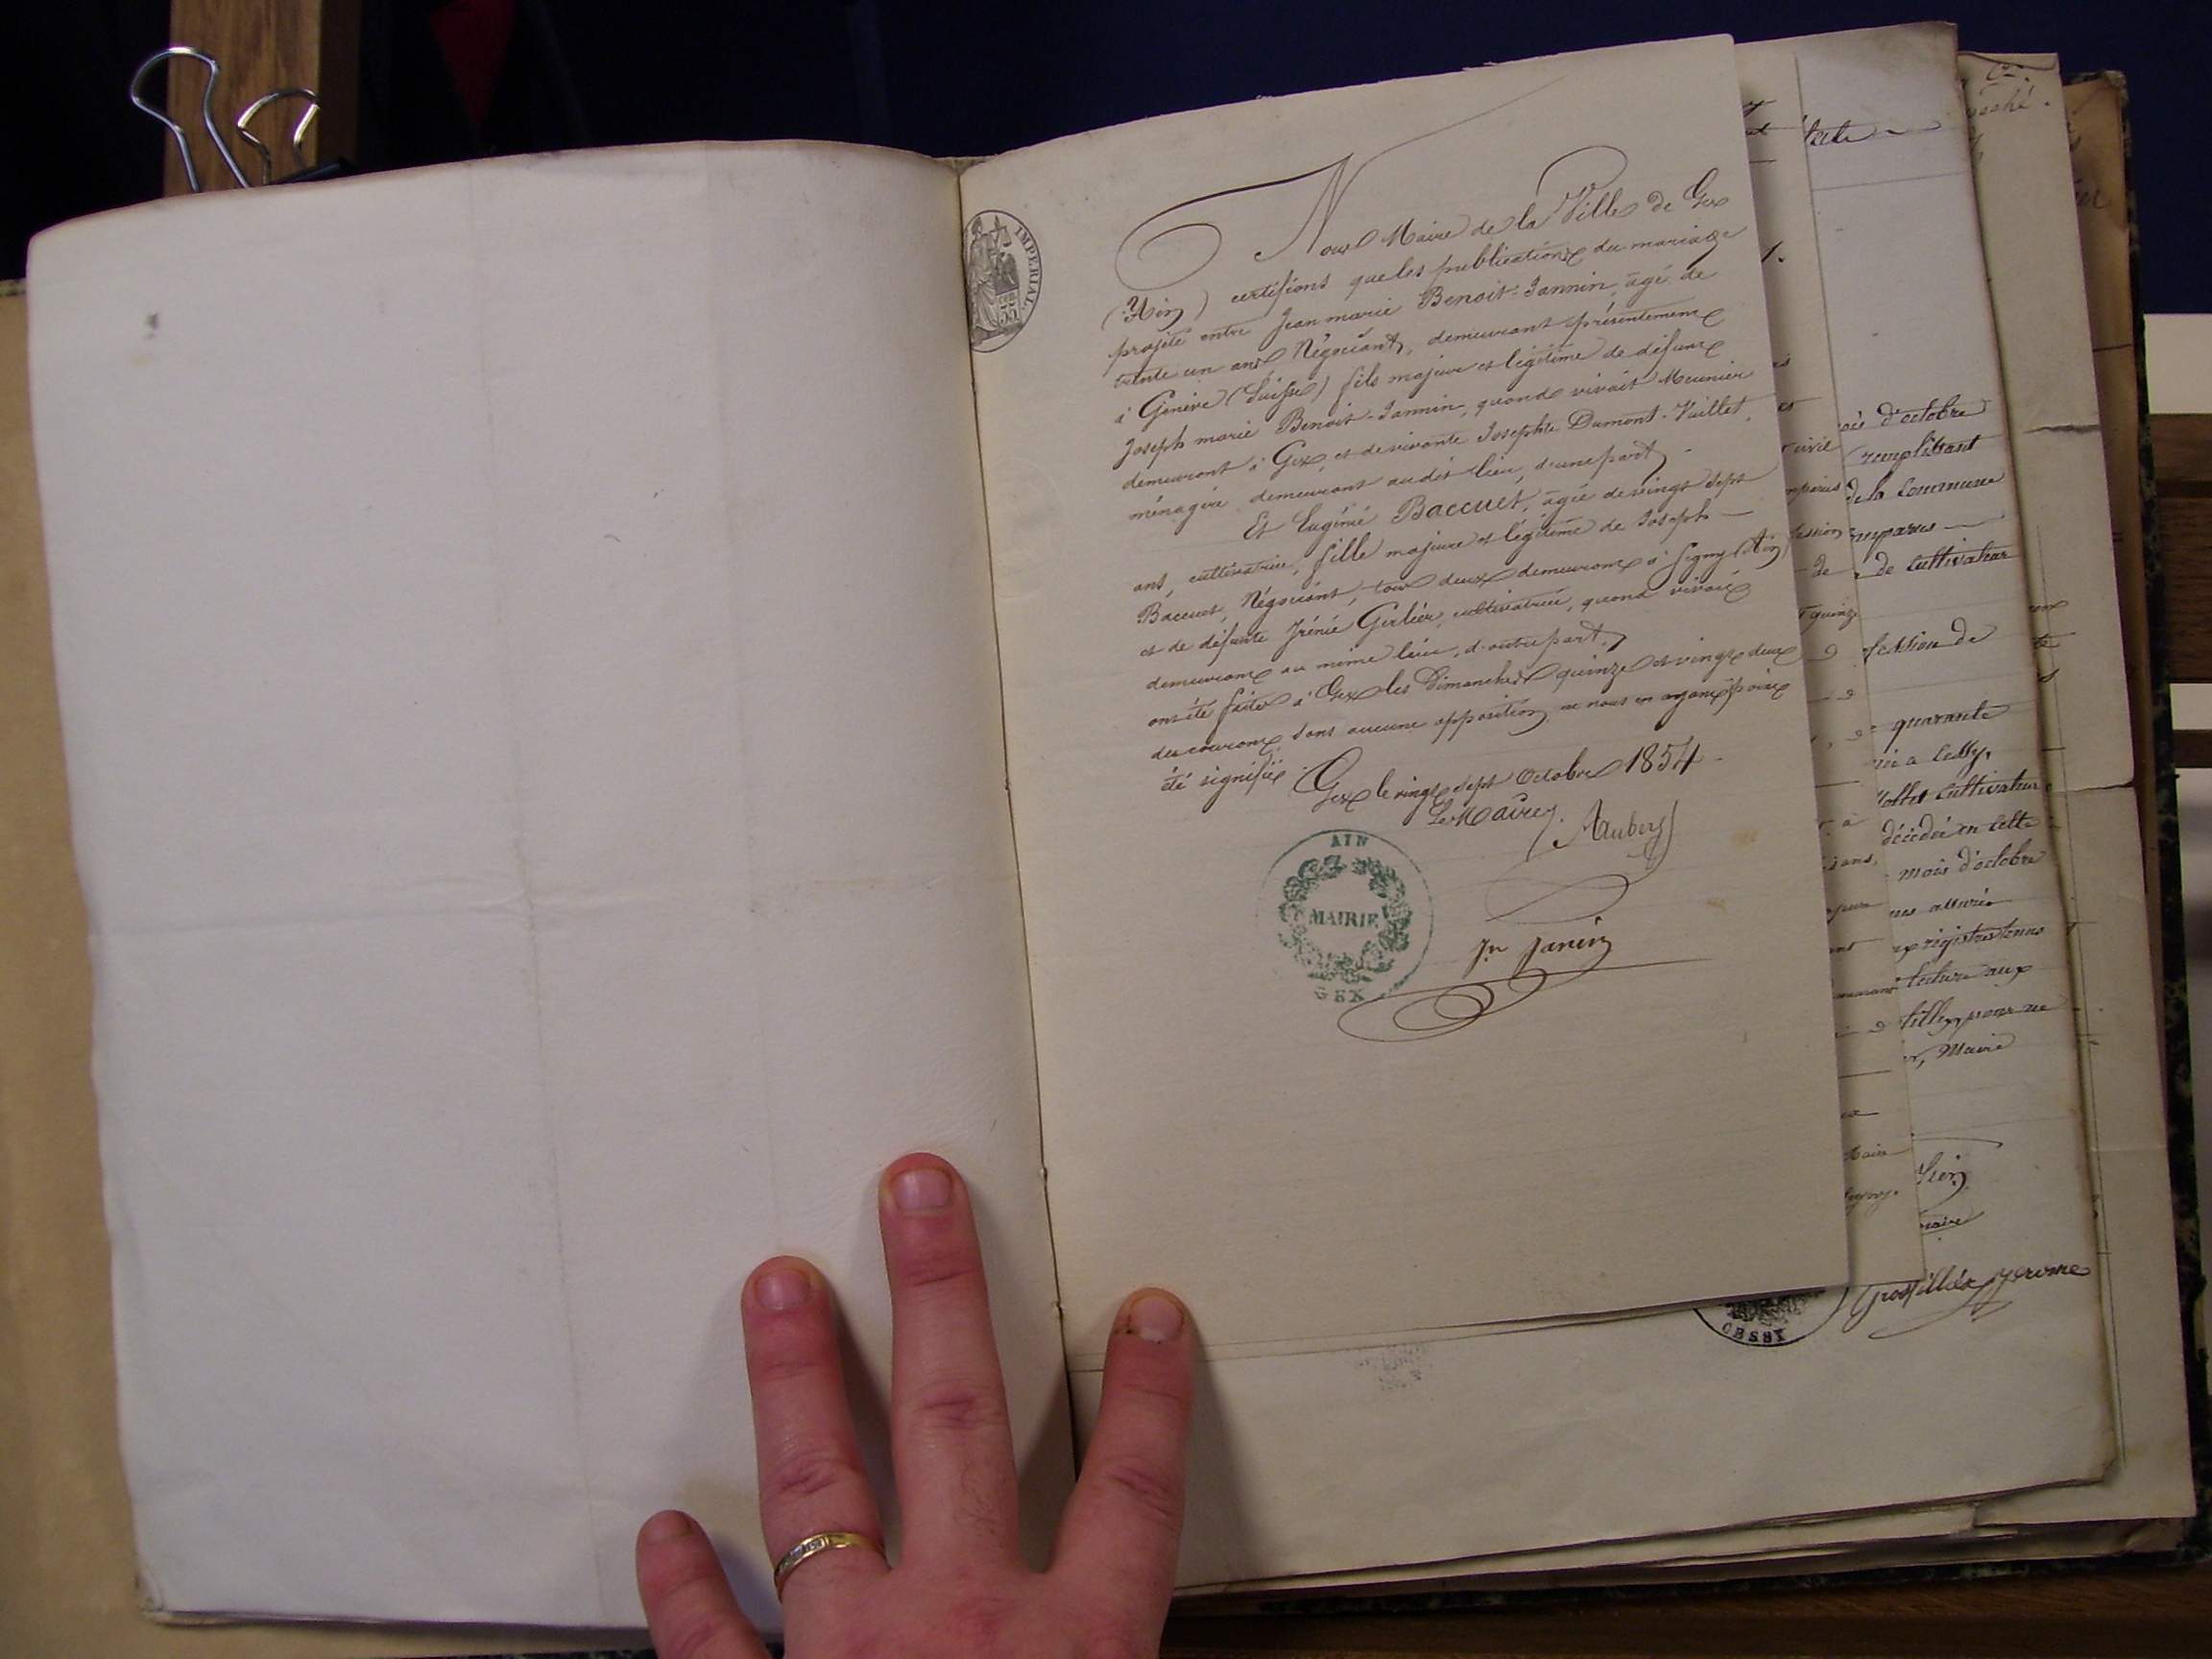 IMPERIAL
35
Nous Maire de la Ville de Gex
(Ain) certifions que les publications du mariage
projeté entre Jean marie Benoit-Jannin, âgé de
trente un ans, Négociant, demeurant présentement
à Genève (Suisse) fils majeur et légitime de défunt
Joseph marie Benoit-Jannin, quand vivait Meunier
demeurant à Gex, et de vivante Josephte Dumont-Vuillet,
ménagère demeurant audit lieu, d'une part
Et Eugénie Baccuet, âgée de vingt sept
ans, cultivatrice, fille majeure et légitime de Joseph
Baccuet, Négociant, tous deux demeurant à Segny (Ain)
et de défunte Irénie Gerlier, cultivatrice, quand vivait
demeurant au même lieu, d'autre part,
ont été faites à Gex les Dimanches quinze et vingt deux
du courant sans aucune opposition ne nous en ayant point
été signifié.
Gex le vingt sept Octobre 1854.
Le Maire,
Jn Janin
AIN
MAIRIE
GEX
d'octobre
remplissant
de la Commune
de Cultivateur
quarante
Cultivateur
décédée en cette
mois d'octobre
registres tenus
lecture aux
Maire
Jerome
CESSY
civil
quinze